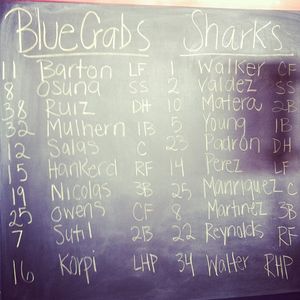 BlueCrabs Sharks
11 Barton LF 1 Walker CF
8 Osuna SS 2 Valdez SS
38 Ruiz DH 10 Matera 2B
32 Mulhern 1B 5 Young 1B
2 Salas C 23 Padrón DH
15 Hankerd RF 14 Perez LF
19 Nicolas 3B 25 Manriquez C
25 Owens CF 8 Martinez 3B
7 Sutil 2B 22 Reynolds RF
16 Korpi LHP 34 Walter RHP